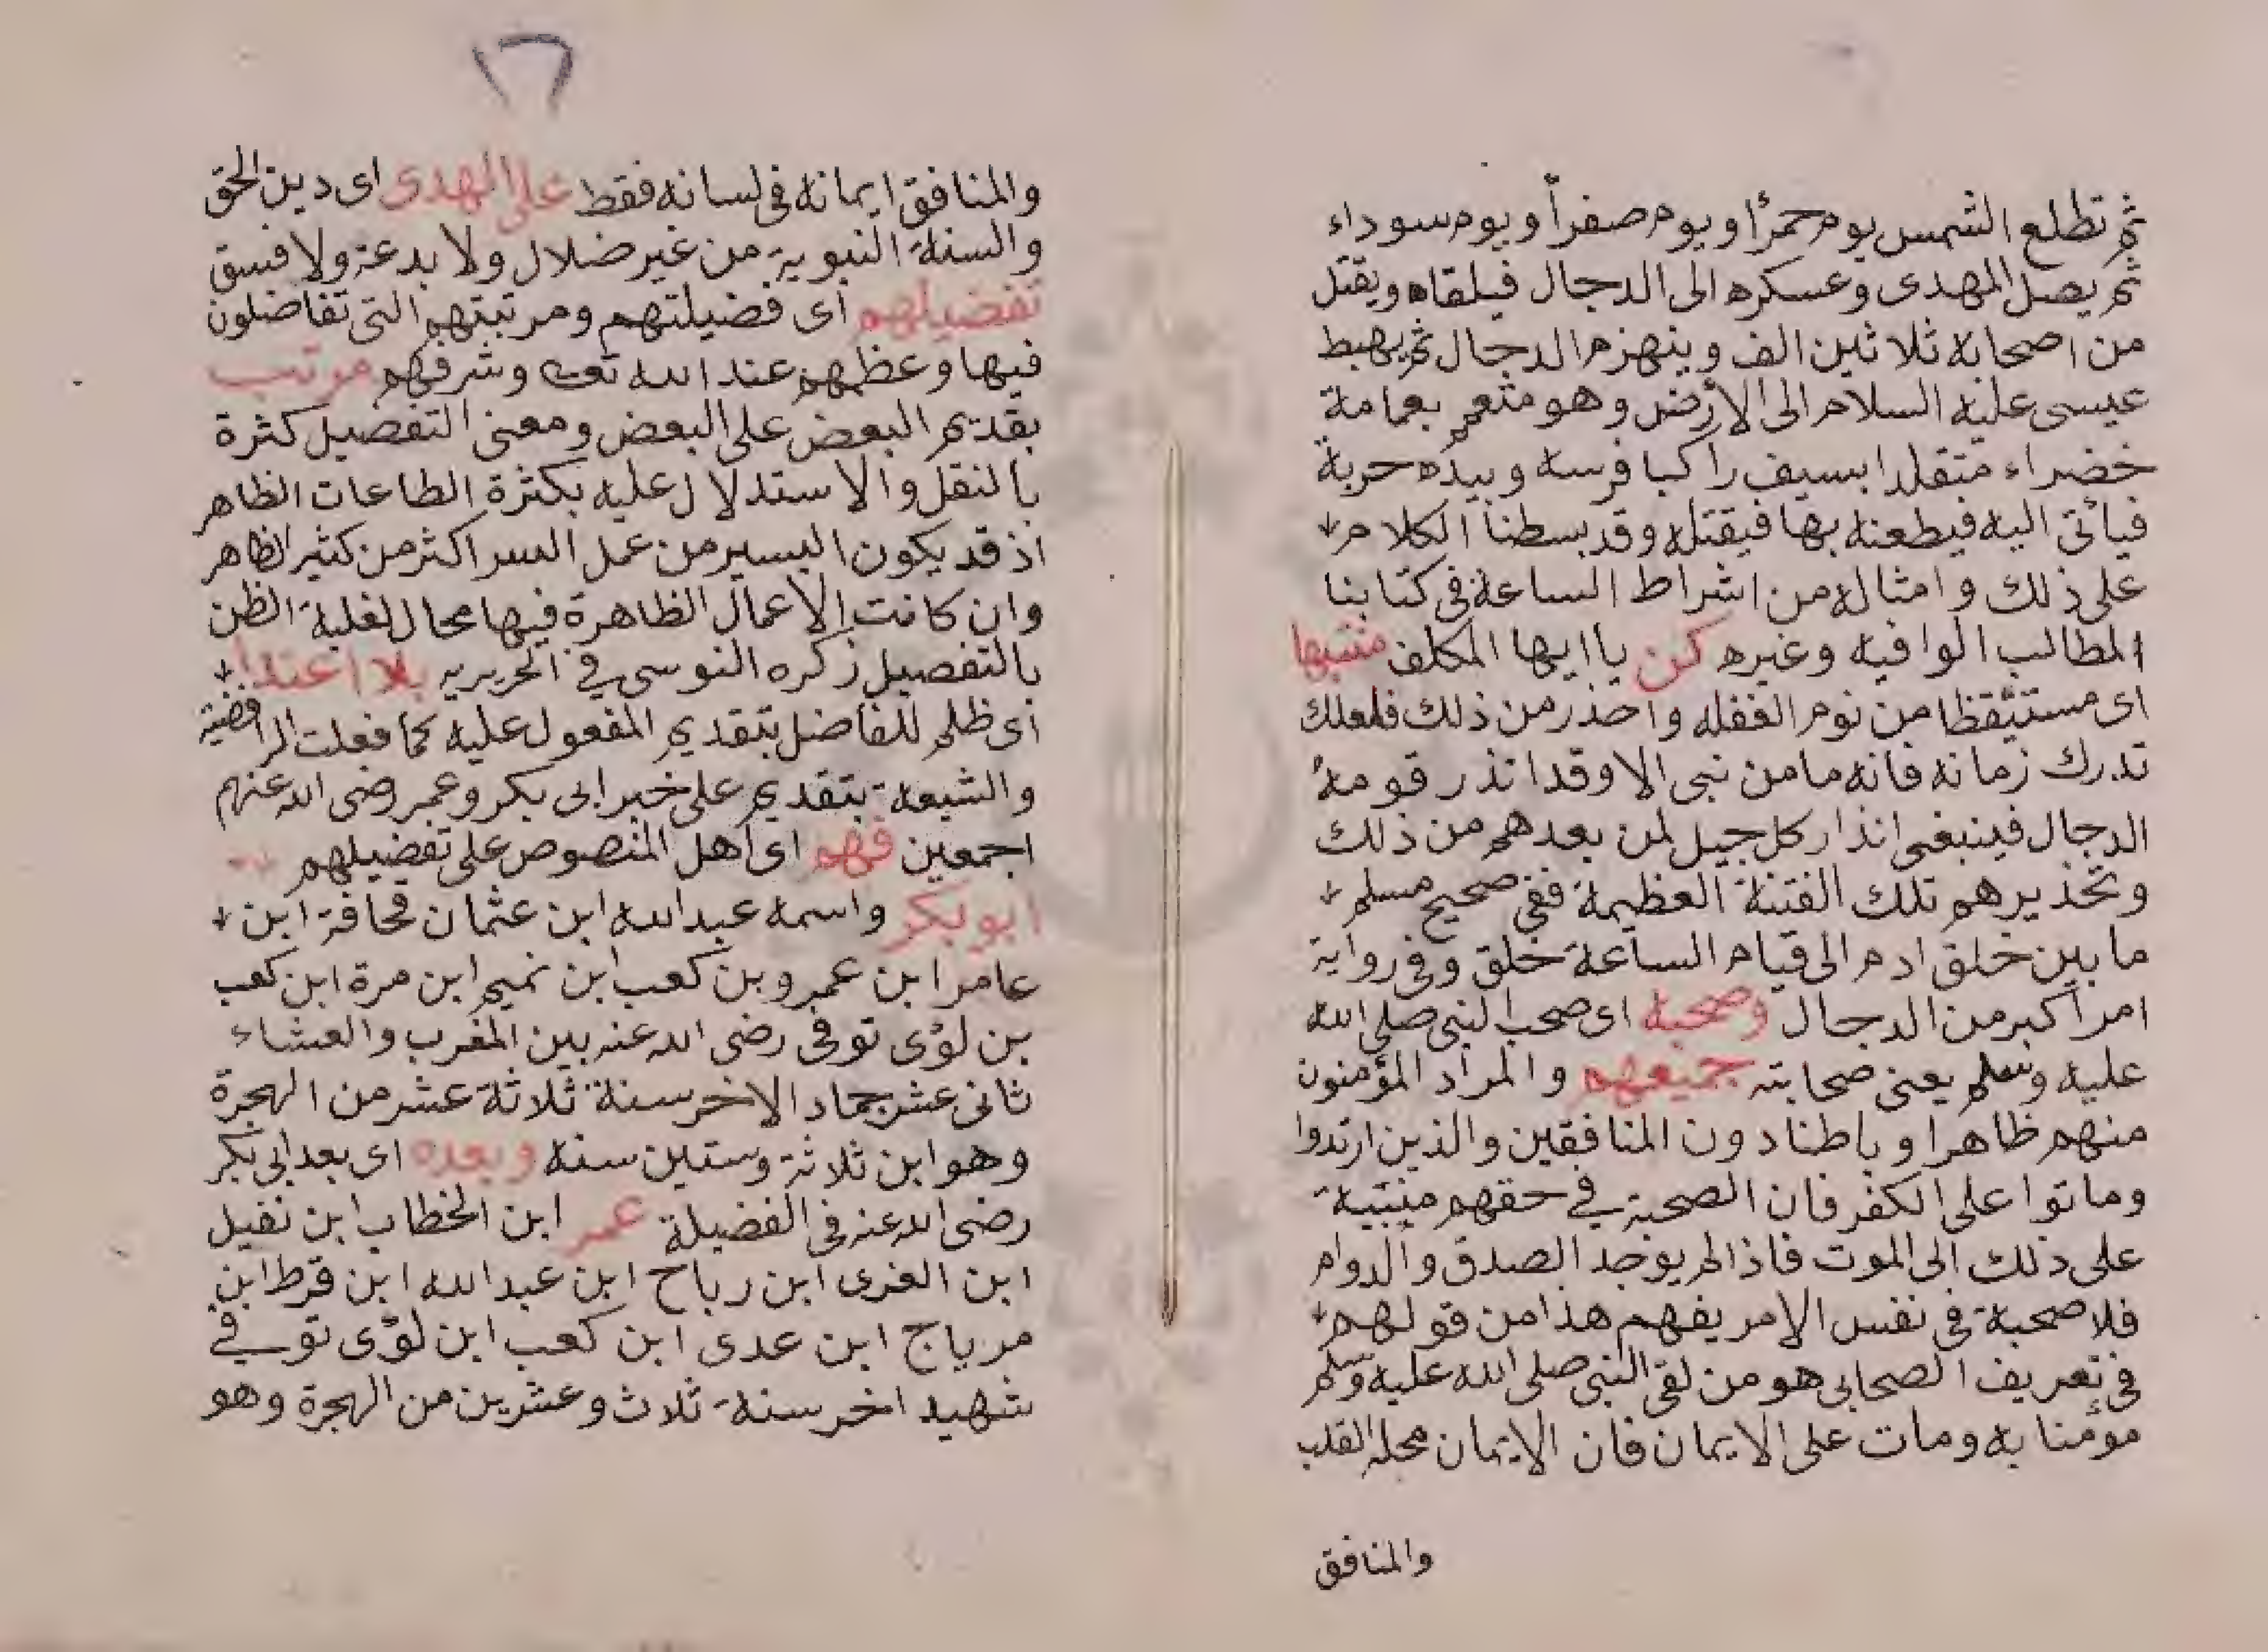 ثم تطلع الشمس يوم حمرأ ويوم صفرأ ويوم سوداء
ثم يصل المهدى وعسكره الى الدجال فيلقاه ويقتل
من اصحابه ثلاثين الف وينهزم الدجال ثم يهبط
عيسى عليه السلام الى الارض وهو متعمم بعمامة
خضراء متقلدا بسيف راكبا فرسه وبيده حربة
فيأتى اليه فيطعنه بها فيقتله وقد بسطنا الكلام
على ذلك وامثاله من اشراط الساعة فى كتابنا
المطالب الوافيه وغيره كن يا ايها المكلف منتبها
اى مستيقظا من نوم الغفله واحذر من ذلك فلعلك
تدرك زمانه فانه ما من نبى الا وقد انذر قومه
الدجال فينبغى انذار كل جيل لمن بعدهم من ذلك
وتحذيرهم تلك الفتنة العظيمة ففى صحيح مسلم
ما بين خلق ادم الى قيام الساعة خلق وفى رواية
امر أكبر من الدجال وصحبه اى صحب النبى صلى الله
عليه وسلم يعنى صحابته جميعهم والمراد المؤمنون
منهم ظاهرا وباطنا دون المنافقين والذين ارتدوا
وماتوا على الكفر فان الصحبة فى حقهم
على ذلك الى الموت فاذا لم يوجد الصدق والدوام
فلا صحبة فى نفس الامر يفهم هذا من قولهم
فى تعريف الصحابى هو من لقى النبى صلى الله عليه وسلم
مؤمنا به ومات على الايمان فان الايمان محله القلب
والمنافق
٢٦
والمنافق ايمانه فى لسانه فقط على الهدى اى دين الحق
والسنة النبوية من غير ضلال ولا بدعة ولا فسق
تفضيلهم اى فضيلتهم ومرتبتهم التى تفاضلون
فيها وعظمهم عند الله تعالى وشرفهم مرتب
بقديم البعض على البعض ومعنى التفضيل كثرة
بالنقل والاستدلال عليه بكثرة الطاعات الظاهر
اذ قد يكون اليسير من عمل السر اكثر من كثير الظاهر
وان كانت الاعمال الظاهرة فيها محال لغلبة الظن
بالتفصيل زكره النوسى فى الحريريه بلا اعتدا
اى ظلم للفاضل بتقديم المفعول عليه كما فعلت الرافضية
والشيعة بتقديم على خبر ابى بكر وعمر رضى الله عنهم
اجمعين فهم اى اهل المنصوص على تفضيلهم
ابو بكر واسمه عبد الله ابن عثمان قحافة ابن
عامر ابن عمرو بن كعب ابن تميم ابن مرة ابن كعب
بن لؤى توفى رضى الله عنه بين المغرب والعشاء
ثانى عشر جماد الاخر سنة ثلاثة عشر من الهجرة
وهو ابن ثلاثة وستين سنه وبعده اى بعد ابى بكر
رضى الله عنه فى الفضيلة عمر ابن الخطاب ابن نفيل
ابن العزى ابن رباح ابن عبد الله ابن قرط ابن
مرياج ابن عدى ابن كعب ابن لؤى توفى
شهيد اخر سنة ثلاث وعشرين من الهجرة وهو